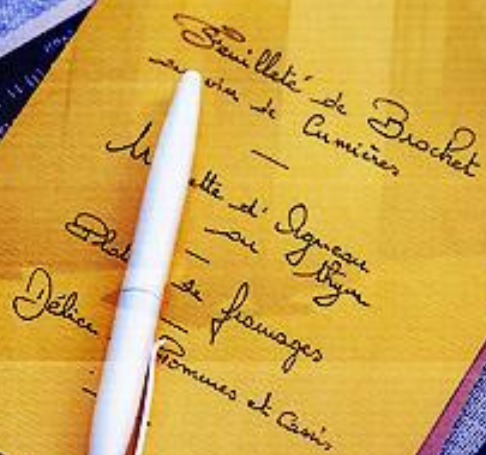 Feuilleté de Brochet
au vin de Cumières
—
ette d'Agneau
au thym
—
Plat de fromages
—
Délice Pommes et Cassis